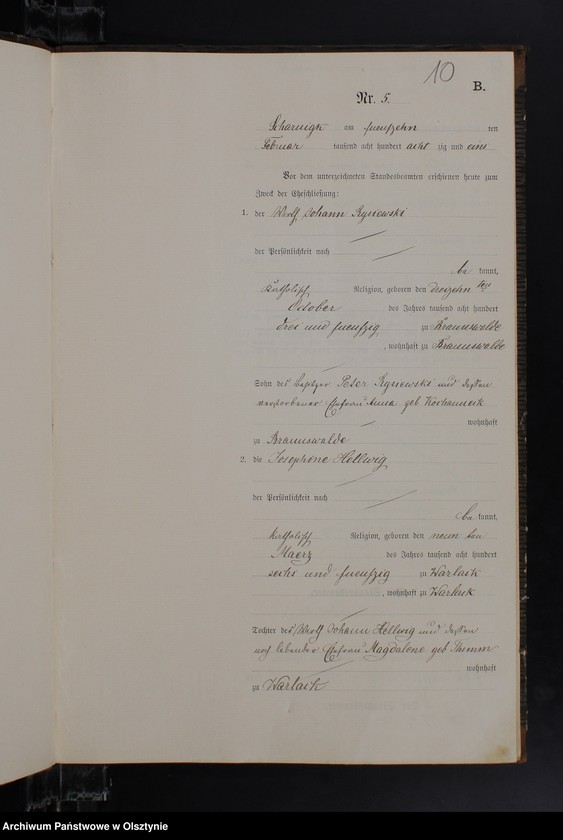 10
B.
Nr. 5.
Scharnigk am fuenfzehn ten
Februar tausend acht hundert acht zig und eins
Vor dem unterzeichneten Standesbeamten erschienen heute zum
Zweck der Eheschließung:
1. der Wirth Johann
der Persönlichkeit nach
be kannt,
katholisch Religion, geboren den dreizehn ten
October des Jahres tausend acht hundert
drei und fuenfzig zu Braunswalde
, wohnhaft zu Braunswalde
Sohn des Besitzer Peter und dessen
verstorbener Ehefrau Anna geb
wohnhaft
zu Braunswalde
2. die Josephine Hellwig
der Persönlichkeit nach
be kannt,
katholisch Religion, geboren den neun ten
Maerz des Jahres tausend acht hundert
sechs und fuenfzig zu Warlack
, wohnhaft zu Warlack
Tochter des Wirth Johann Hellwig und dessen
noch lebender Ehefrau Magdalene geb Thimm
wohnhaft
zu Warlack
Archiwum Państwowe w Olsztynie